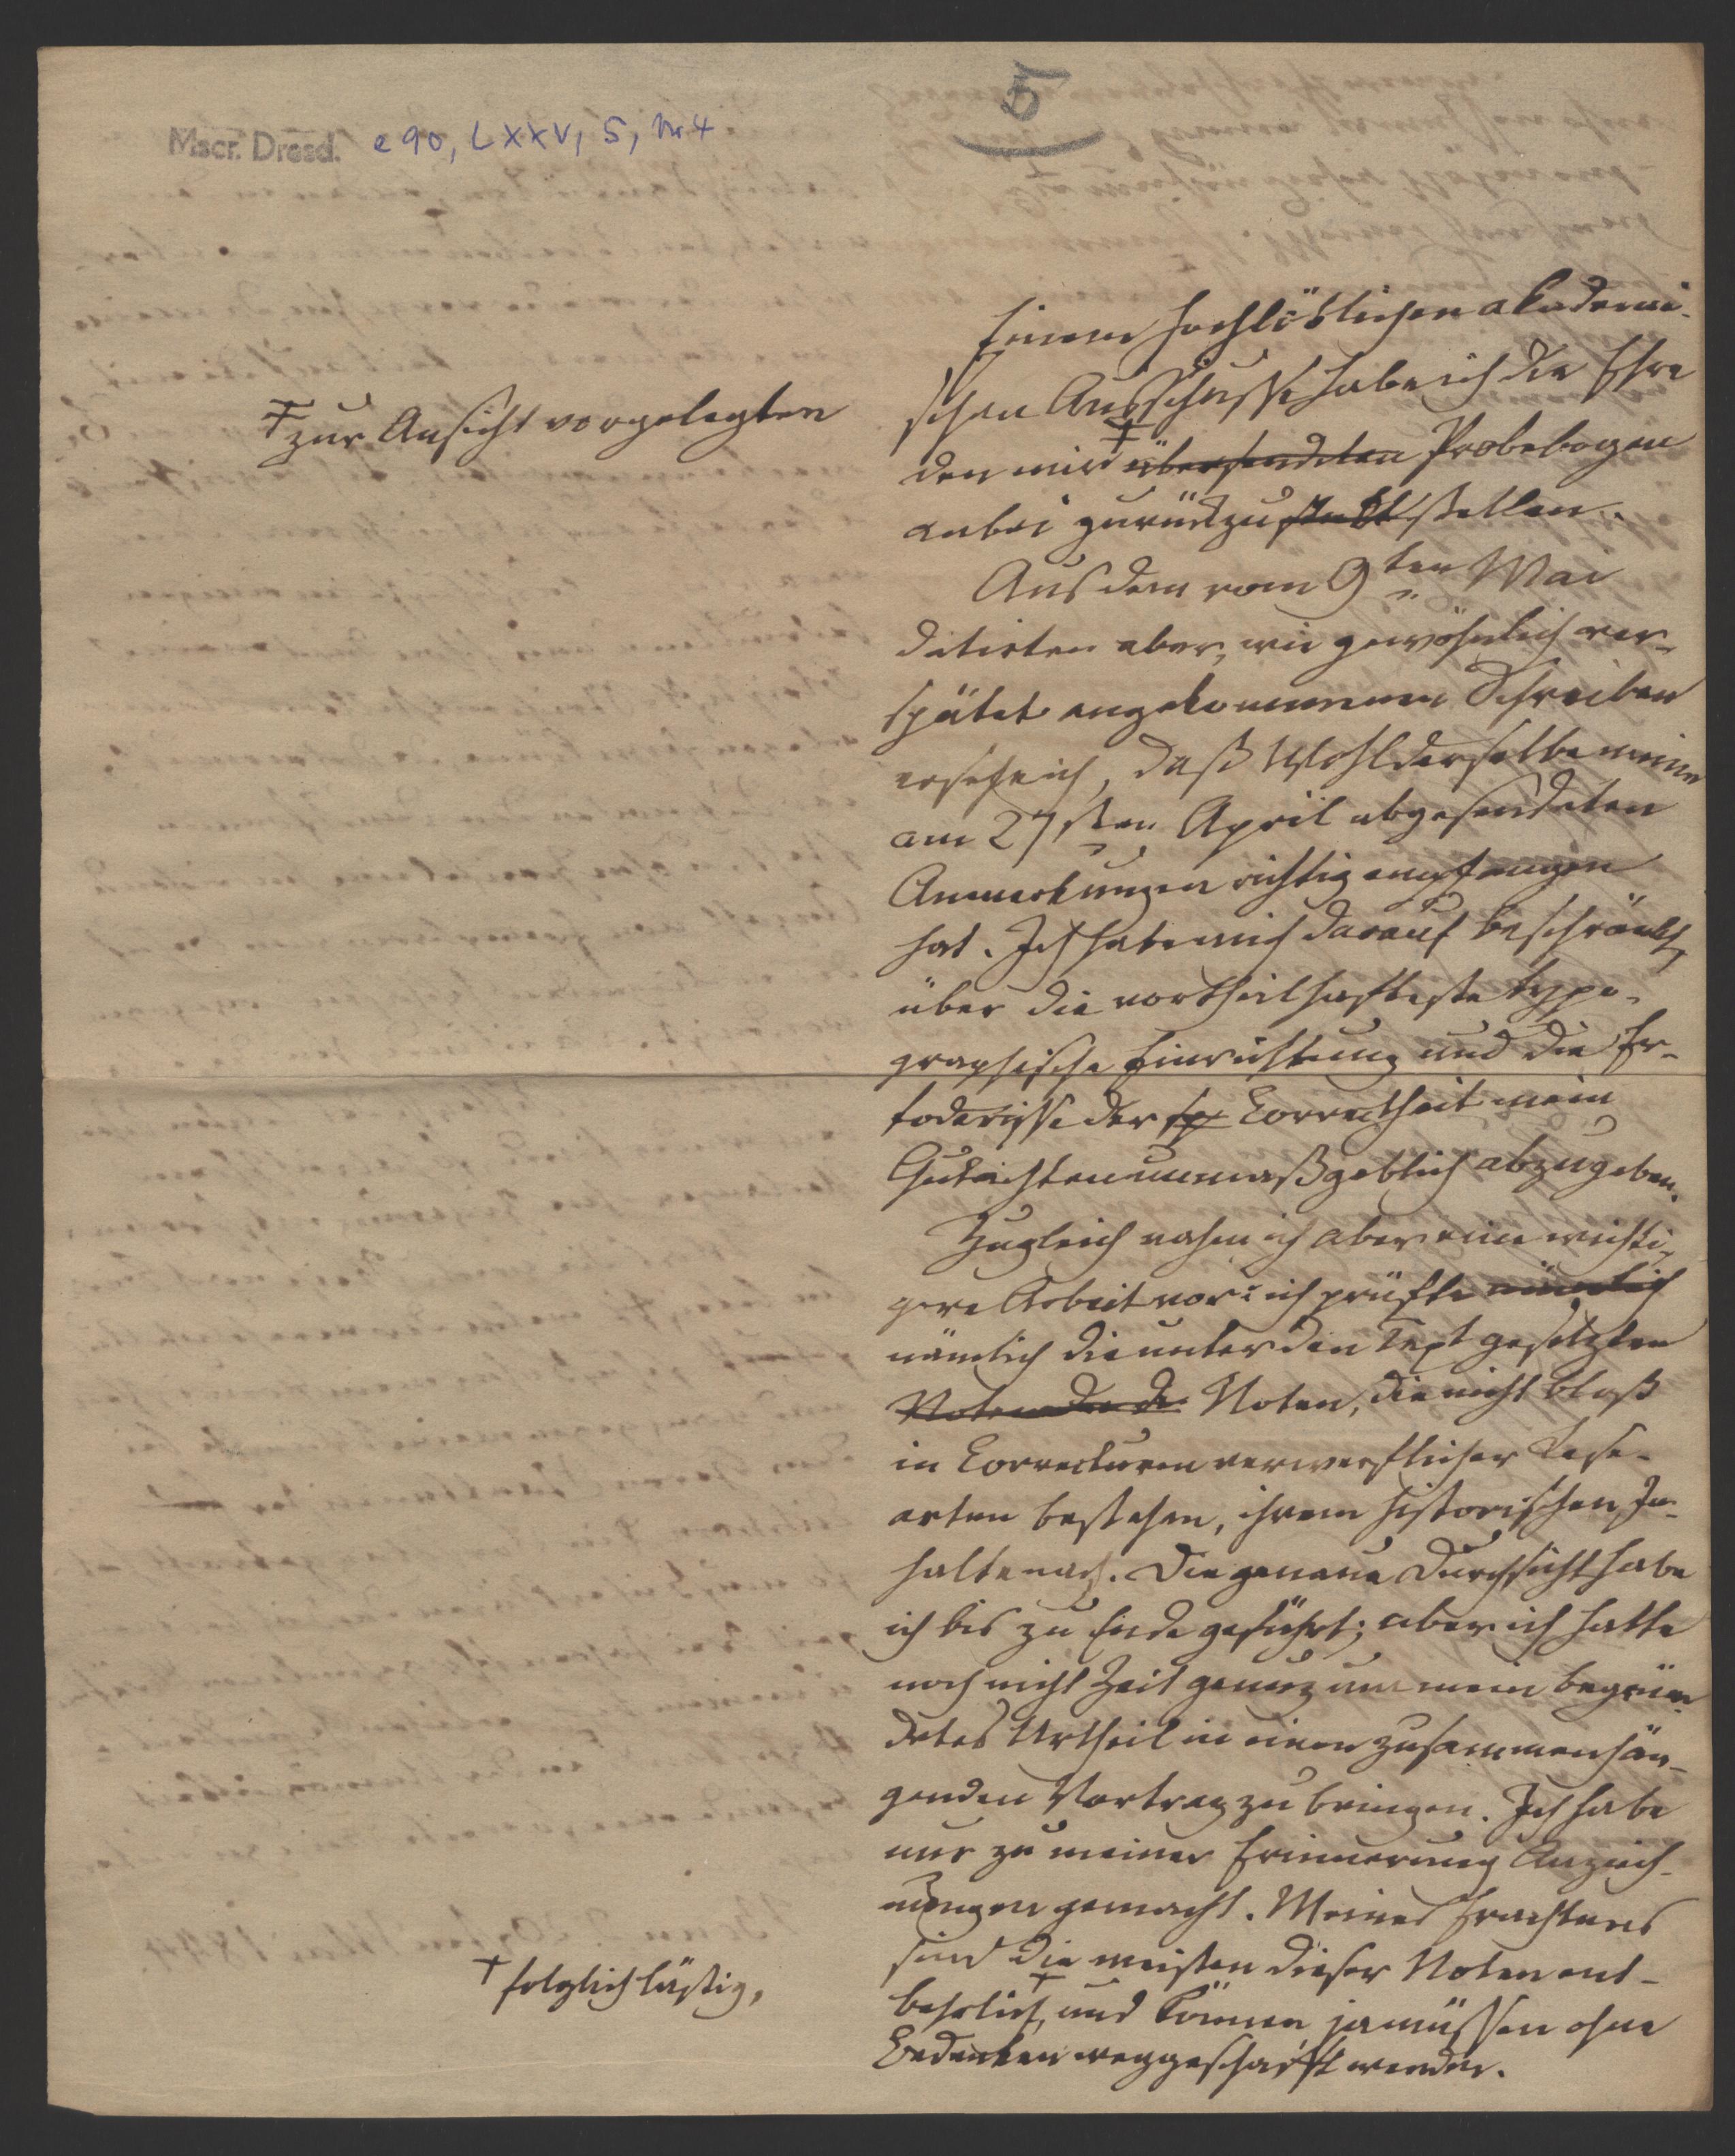 5
Mscr. Dresd. e 90, LXXV, 5, Nr 4
Einem hochlöblichen akademi-
schen Ausschusse habe ich die Ehre
† zur Ansicht vorgelegten
den mir † übersendeten Probebogen
anbei zurückzustellen.
Aus dem vom 9ten Mai
datirten aber, wie gewöhnlich ver-
spätet angekommenen Schreiben
ersehe ich, daß Wohlderselbe meine
am 27sten April abgesendeten
Anmerkungen richtig empfangen
hat. Ich habe mich darauf beschränkt,
über die vortheilhafteste typo-
graphische Einrichtung und die Er-
fodernisse der Correctheit mein
Gutachten unmaßgeblich abzugeben.
Zugleich nahm ich aber eine wichti-
gere Arbeit vor: ich prüfte nämlich
nämlich die unter den Text gesetzten
Noten, die nicht bloß
in Correcturen verwerflicher Lese-
arten bestehen, ihrem historischen In-
halte nach. Die genaue Durchsicht habe
ich bis zu Ende geführt; aber ich hatte
noch nicht Zeit genug um mein begrün-
detes Urtheil in einen zusammenhän-
genden Vortrag zu bringen. Ich habe
nur zu meiner Erinnerung Anzeich-
nungen gemacht. Meines Erachtens
sind die meisten dieser Noten ent-
† folglich lästig,
behrlich, † und können, ja müssen ohne
Bedenken weggeschafft werden.